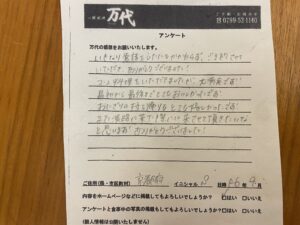 万代
ご予約・お問合せ
☎ 0799-52-1160
アンケート
万代の感想をお願いいたします。
いきなり電話をしたにもかかわらず、ご予約させて
いただき ありがとうございました!
コース料理をいただきましたが、大満足です!
最初から最後までとてもおいしかったです!
また淡路に来た時にはぜひ来させて頂きたいな
と思います! ありがとうございました!
ご住所(県・市区町村) 京都府 イニシャル 日時
内容をホームページなどに掲載してもよろしいでしょうか? ☑はい □いいえ
アンケートと食事中の写真の掲載もしてよろしいでしょうか? □はい □いいえ
(個人情報は公開いたしません)